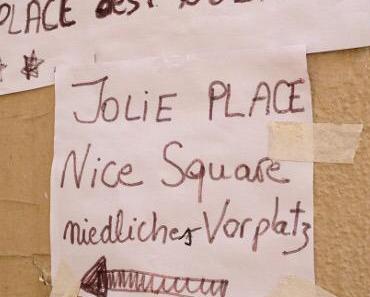 PLACE des
JOLIE PLACE
Nice Square
niedliches Vorplatz